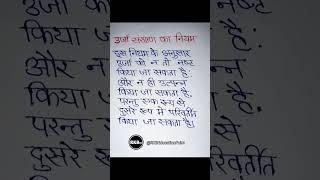 उर्जा संरक्षण का नियम
इस नियम के अनुसार
उर्जा को न तो नष्ट
किया जा सकता है,
और न ही उत्पन्न
किया जा सकता है,
परन्तु एक रूप से
दूसरे रूप में परिवर्तित
किया जा सकता है।
RKB